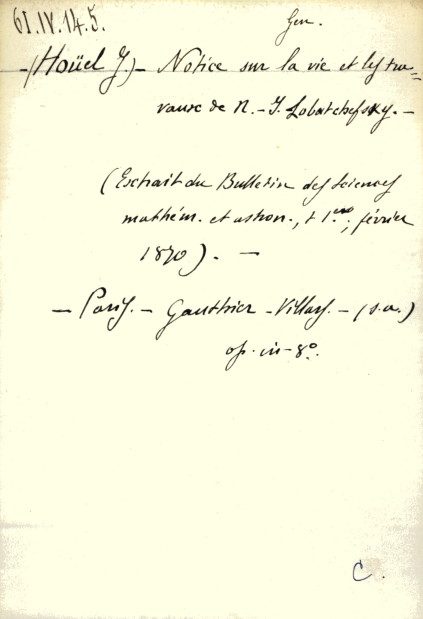 61.IV.14.5.
Gen.
- (Hoüel J.) - Notice sur la vie et les tra=
vaux de N. - J. Lobatchefsky. -
(Extrait du Bulletin des Sciences
mathém. et astron., t 1.er, février
1870). -
- Paris. - Gauthier - Villars. - (s.a.)
op. in - 8º.
C.